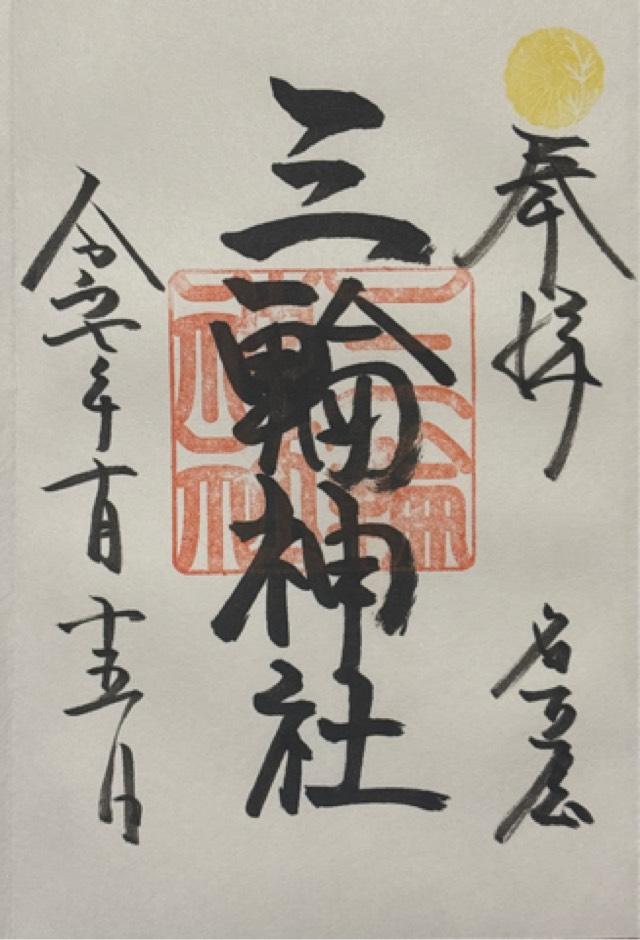 奉拝
名古屋
三輪神社
三輪神社
令和七年十月十五日